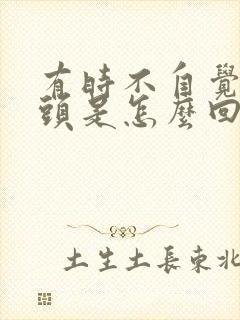 有時不自覺
頭是怎麼回
土生土長東北